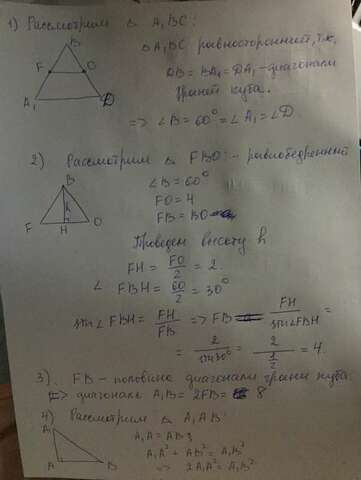 1) Рассмотрим △ A₁BC:
B
F O
A₁ D
△ A₁BC равносторонний, т.к.
DB = BA₁ = DA₁ - диагонали
граней куба.
=> ∠B = 60° = ∠A₁ = ∠D
2) Рассмотрим △ FBO: - равнобедренный
B
h
F H O
∠B = 60°
FO = 4
FB = BO
Проведем высоту h
FH = FO/2 = 2.
∠ FBH = 60/2 = 30°
sin∠ FBH = FH/FB => FB = FH/sin∠FBH =
= 2/sin30° = 2/(1/2) = 4.
3). FB - половина диагонали грани куба.
=> диагональ A₁B = 2FB = 8
4) Рассмотрим △ A₁AB:
A₁
A B
A₁A = AB;
A₁A² + AB² = A₁B²
=> 2A₁A² = A₁B²